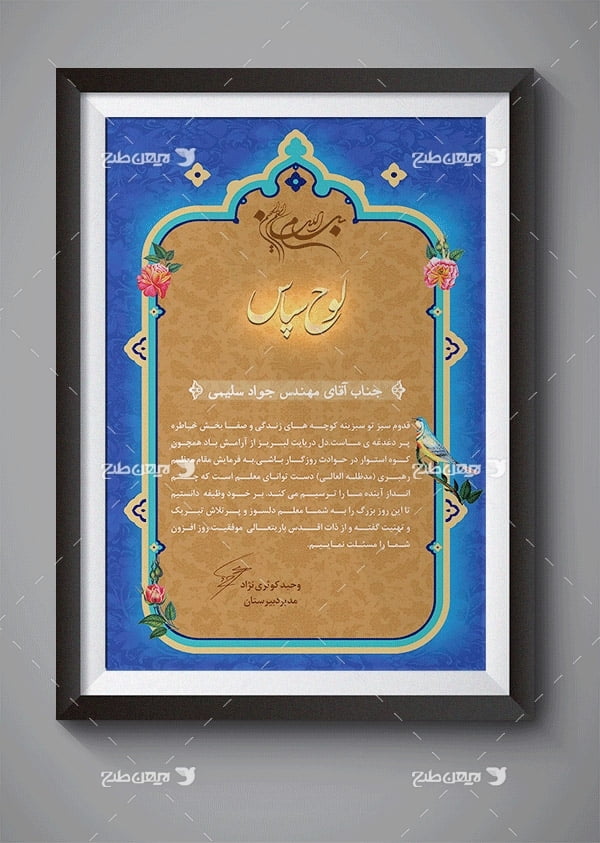 بسم الله الرحمن الرحیم
لوح سپاس
جناب آقای مهندس جواد سلیمی
قدوم سبز تو سبزینه کوچه های زندگی و صفا بخش خاطره
پر دغدغه ی ماست.دل دریایت لبریز از آرامش باد همچون
کوه استوار در حوادث روزگار باشی.به فرمایش مقام معظم
رهبری (مدظله العالی) دست توانای معلم است که چشم
انداز آینده ما را ترسیم می کند. بر خود وظیفه دانستیم
تا این روز بزرگ را به شما معلم دلسوز و پرتلاش تبریک
و تهنیت گفته و از ذات اقدس باریتعالی موفقیت روز افزون
شما را مسئلت نماییم.
وحید کوثری نژاد
مدیر دبیرستان
میهن طرح
میهن طرح
میهن طرح
میهن طرح
میهن طرح
میهن طرح